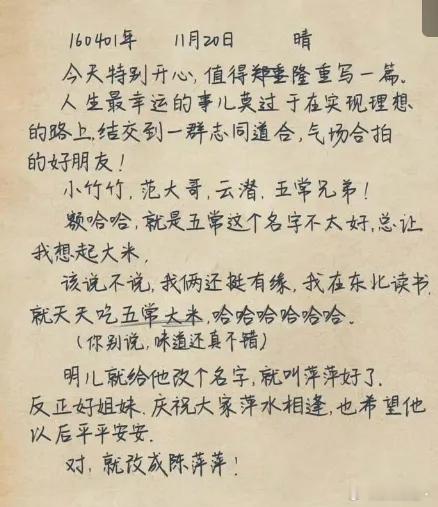 160401年 11月20日 晴
今天特别开心,值得隆重写一篇。
人生最幸运的事儿莫过于在实现理想
的路上,结交到一群志同道合,气场合拍
的好朋友!
小竹竹,范大哥,云潜,五常兄弟!
额哈哈,就是五常这个名字不太好,总让
我想起大米,
该说不说,我俩还挺有缘,我在东北读书,
就天天吃五常大米,哈哈哈哈哈哈。
(你别说,味道还真不错)
明儿就给他改个名字,就叫萍萍好了.
反正好姐妹.庆祝大家萍水相逢,也希望他
以后平平安安.
对,就改成陈萍萍!